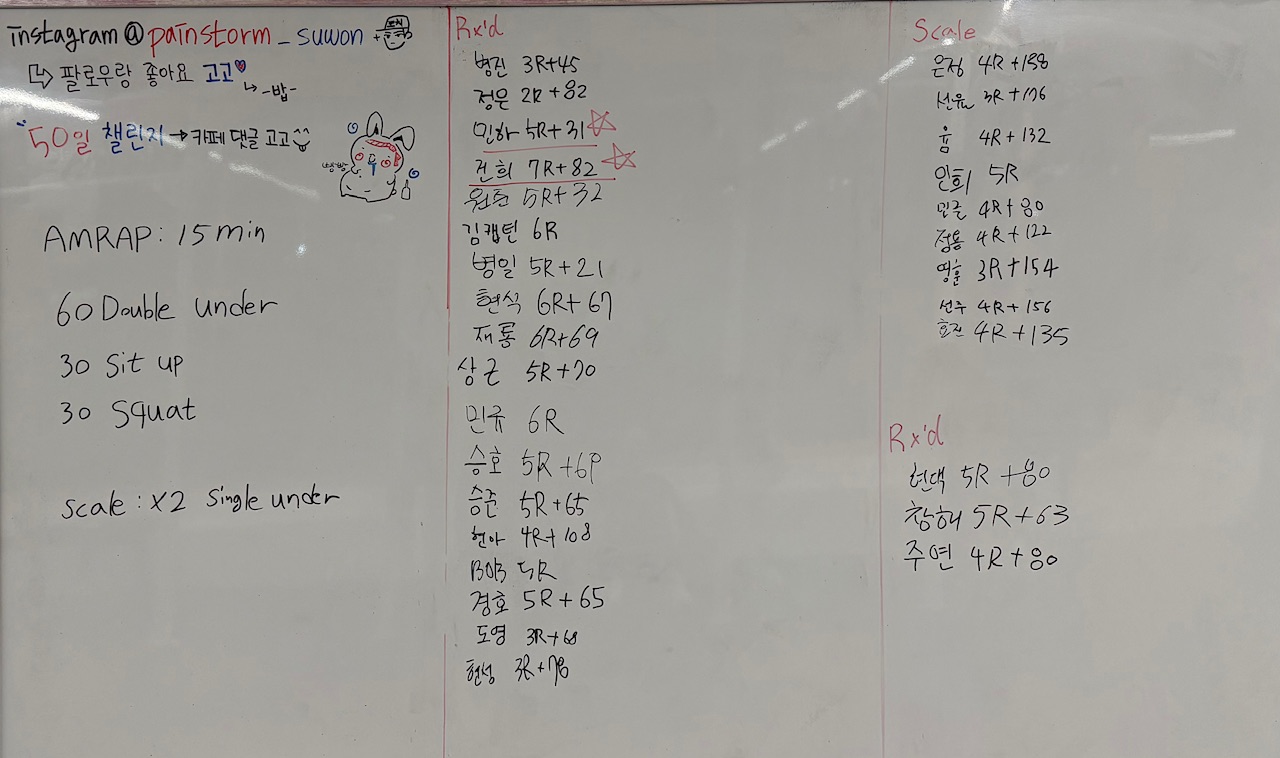 instagram@painstorm_suwon +
↳ 팔로우랑 좋아요 고고♥
↳ -밥-
50일 챌린지 → 카페 댓글 고고
AMRAP: 15min
60 Double under
30 Sit up
30 Squat
scale: x2 Single under
Rx'd
병진 3R+45
정은 2R+82
민하 5R+31
건희 7R+82
5R+32
김캡틴 6R
병일 5R+21
현식 6R+67
재룡 6R+69
상근 5R+70
민규 6R
승호 5R+69
승준 5R+65
현아 4R+108
BOB 5R
경호 5R+65
도영 3R+68
현성 3R+78
Scale
은정 4R+158
선유 3R+176
윰 4R+132
인희 5R
4R+80
정용 4R+122
영훈 3R+154
선주 4R+156
효진 4R+135
Rx'd
현택 5R+80
창해 5R+63
주연 4R+80